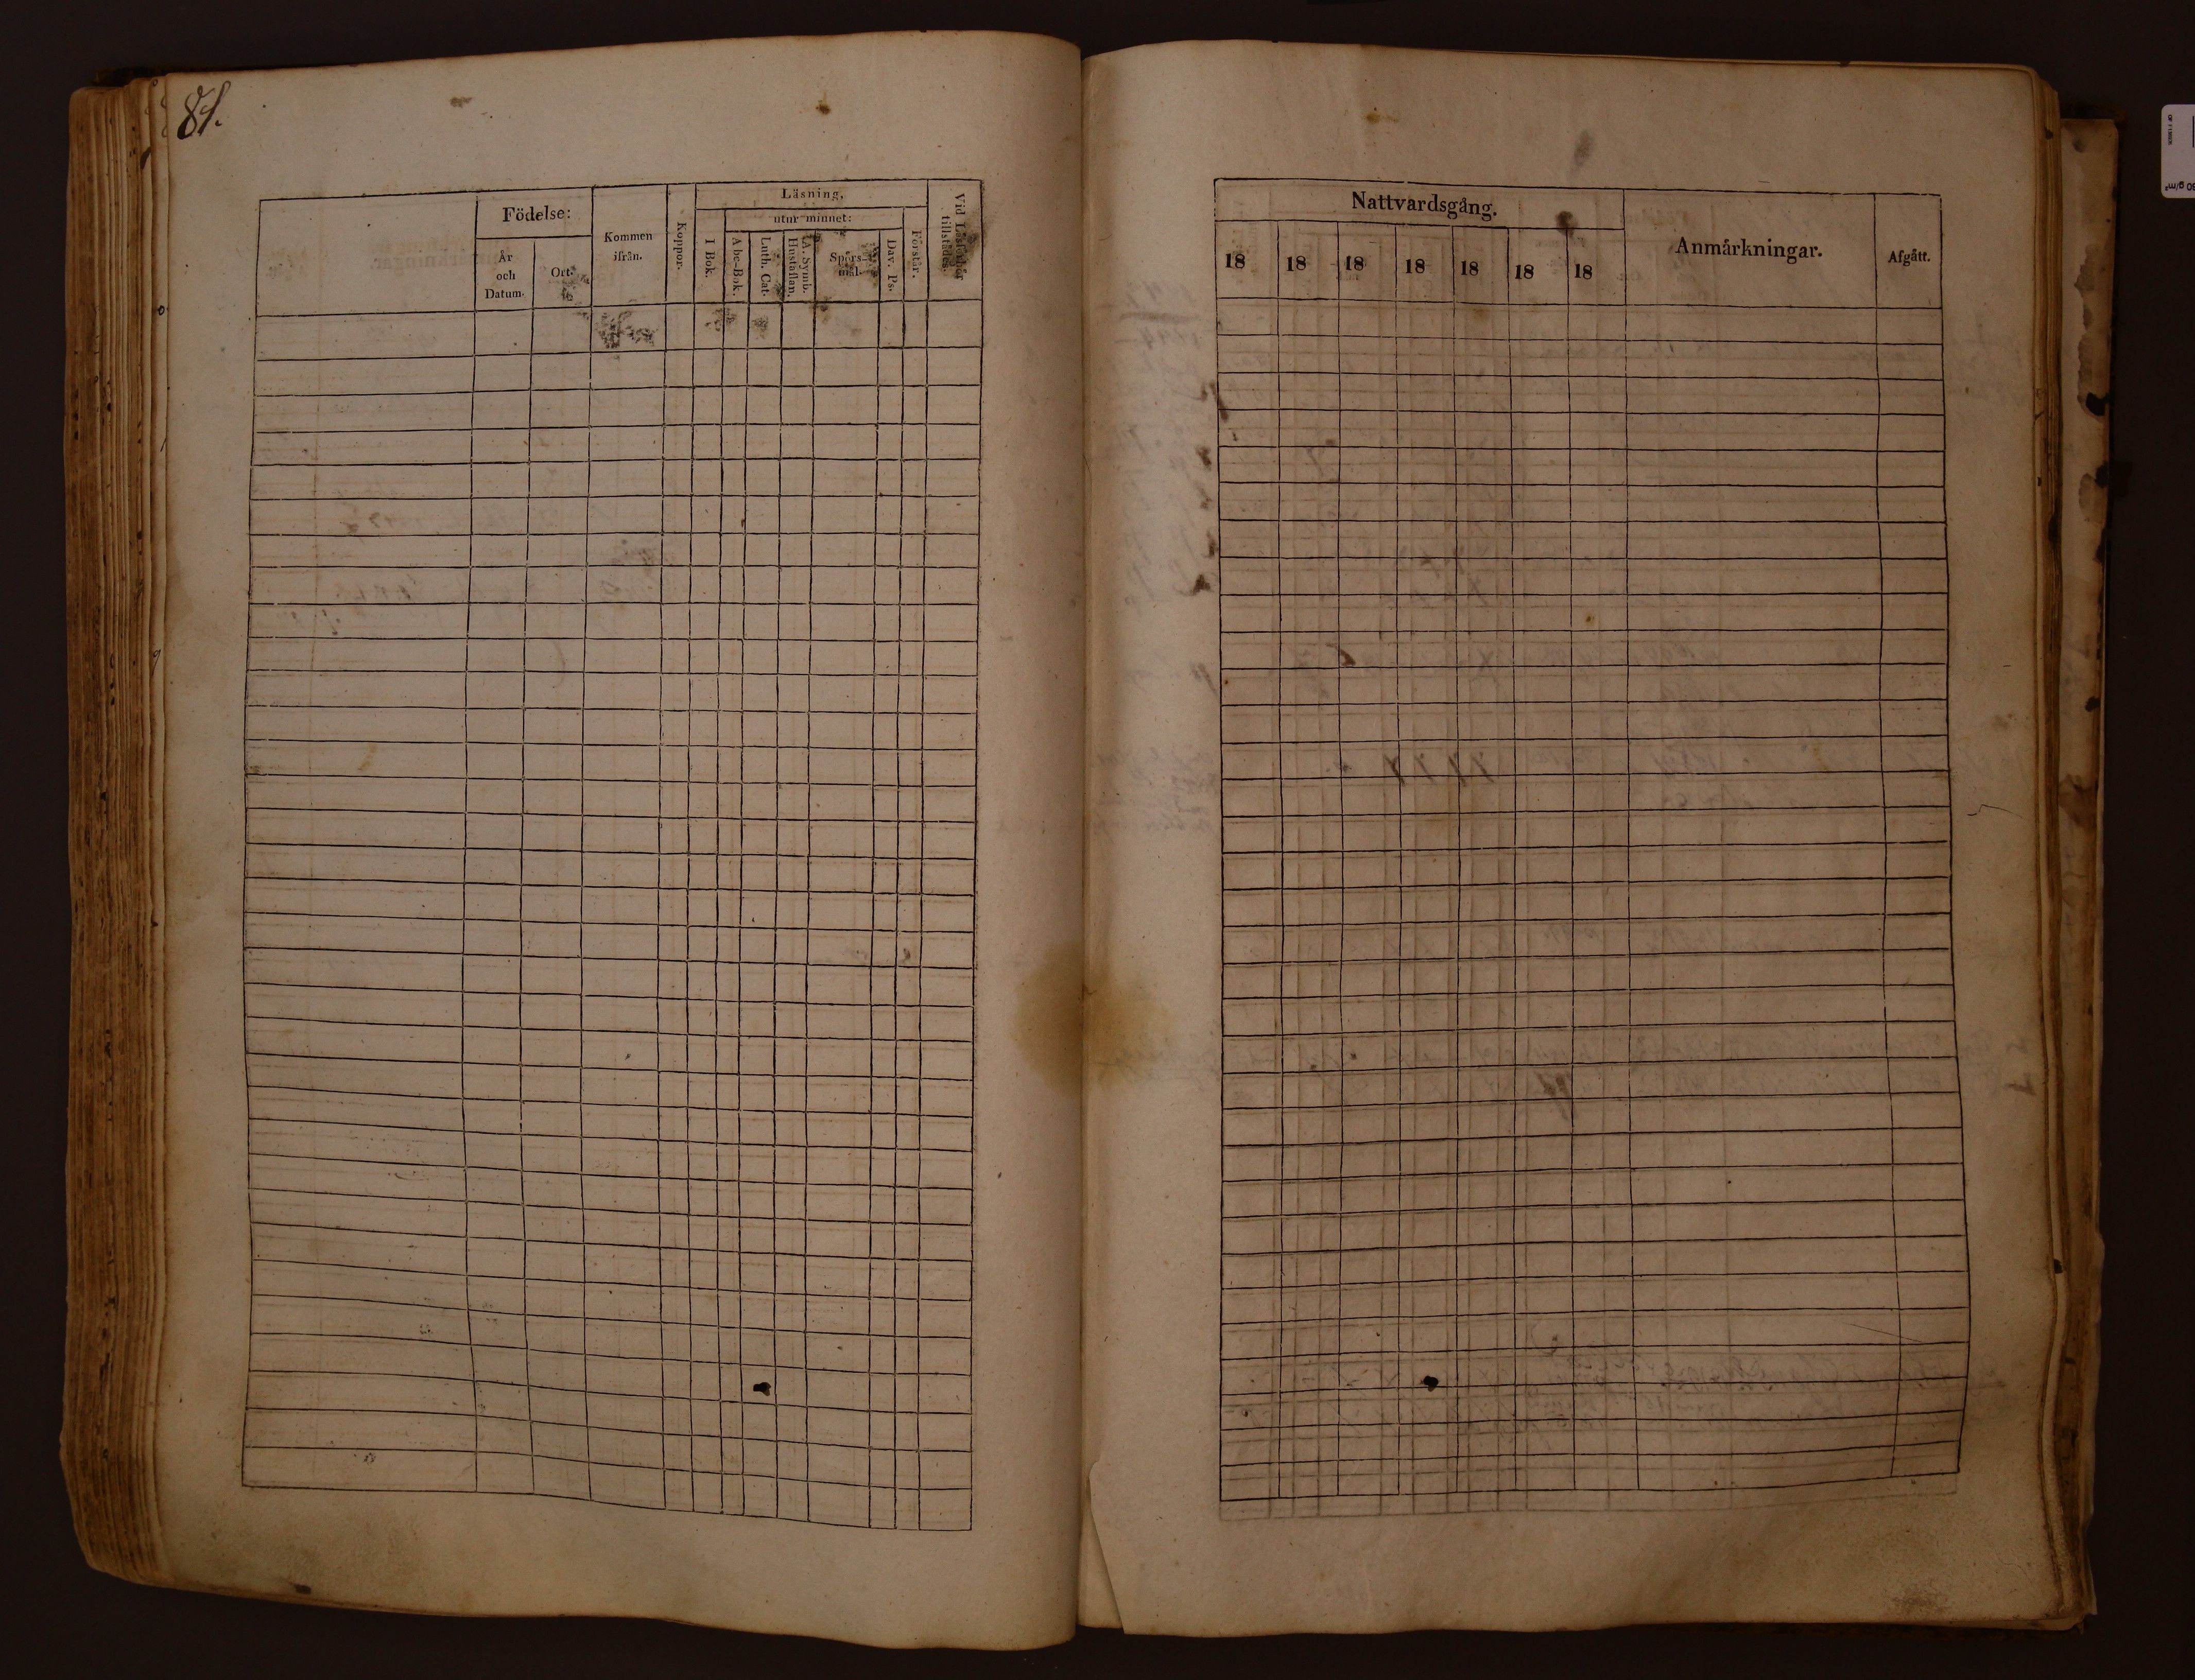 81.
Födelse:
År
och
Datum.
Ort.
Kommen
ifrån.
Koppor.
Läsning,
I Bok.
utur minnet:
A bc-Bok.
Luth. Cat.
A. Symb.
Hustaflan.
Spörs-
mål.
Dav. Ps.
Förstår.
Vid Läsförhör
tillstädes.
Nattvardsgång.
18 18 18 18 18 18 18
Anmärkningar.
Afgått.